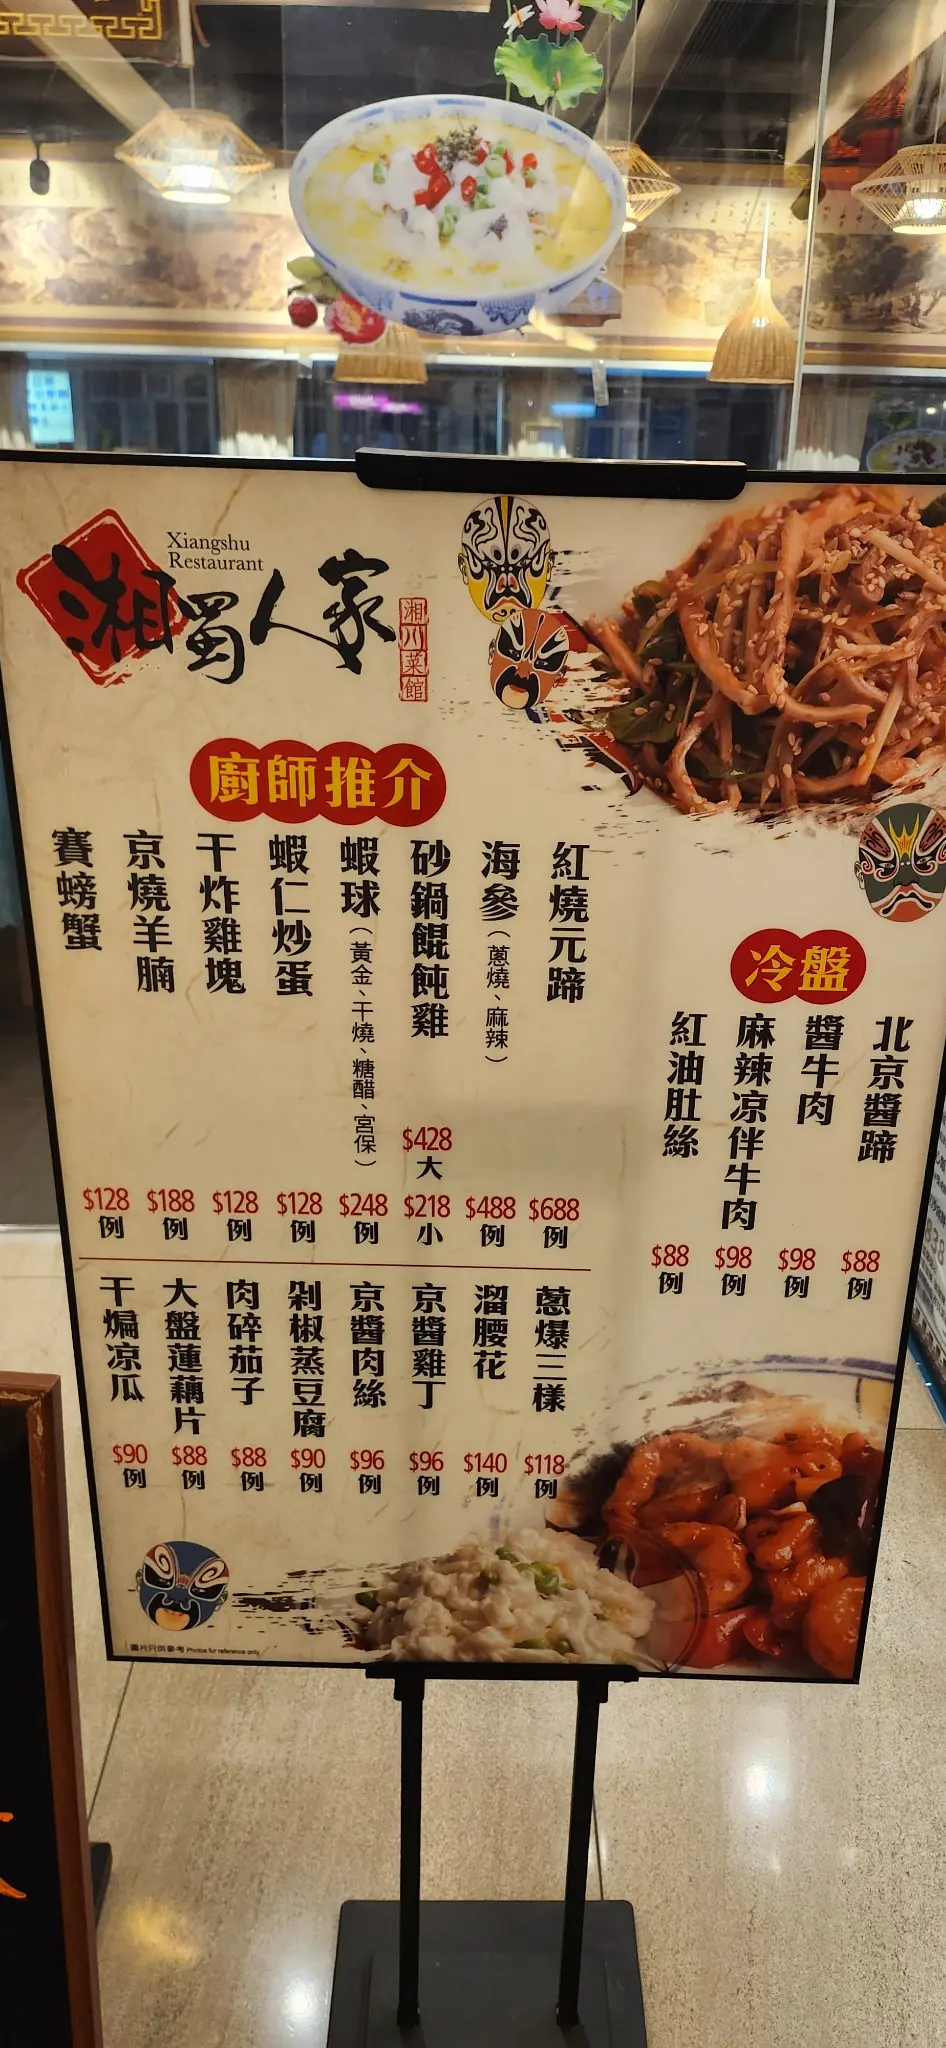 Xiangshu
Restaurant
湘蜀人家
湘川菜館
廚師推介
紅燒元蹄
$688
例
海參（蔥燒、麻辣）
$488
例
砂鍋餛飩雞
$428
大
$218
小
蝦球（黃金、干燒、糖醋、宮保）
$248
例
蝦仁炒蛋
$128
例
干炸雞塊
$128
例
京燒羊腩
$188
例
賽螃蟹
$128
例
蔥爆三樣
$118
例
溜腰花
$140
例
京醬雞丁
$96
例
京醬肉絲
$96
例
剁椒蒸豆腐
$90
例
肉碎茄子
$88
例
大盤蓮藕片
$88
例
干煸凉瓜
$90
例
冷盤
北京醬蹄
$88
例
醬牛肉
$98
例
麻辣凉伴牛肉
$98
例
紅油肚絲
$88
例
圖片只供參考 Photos for reference only